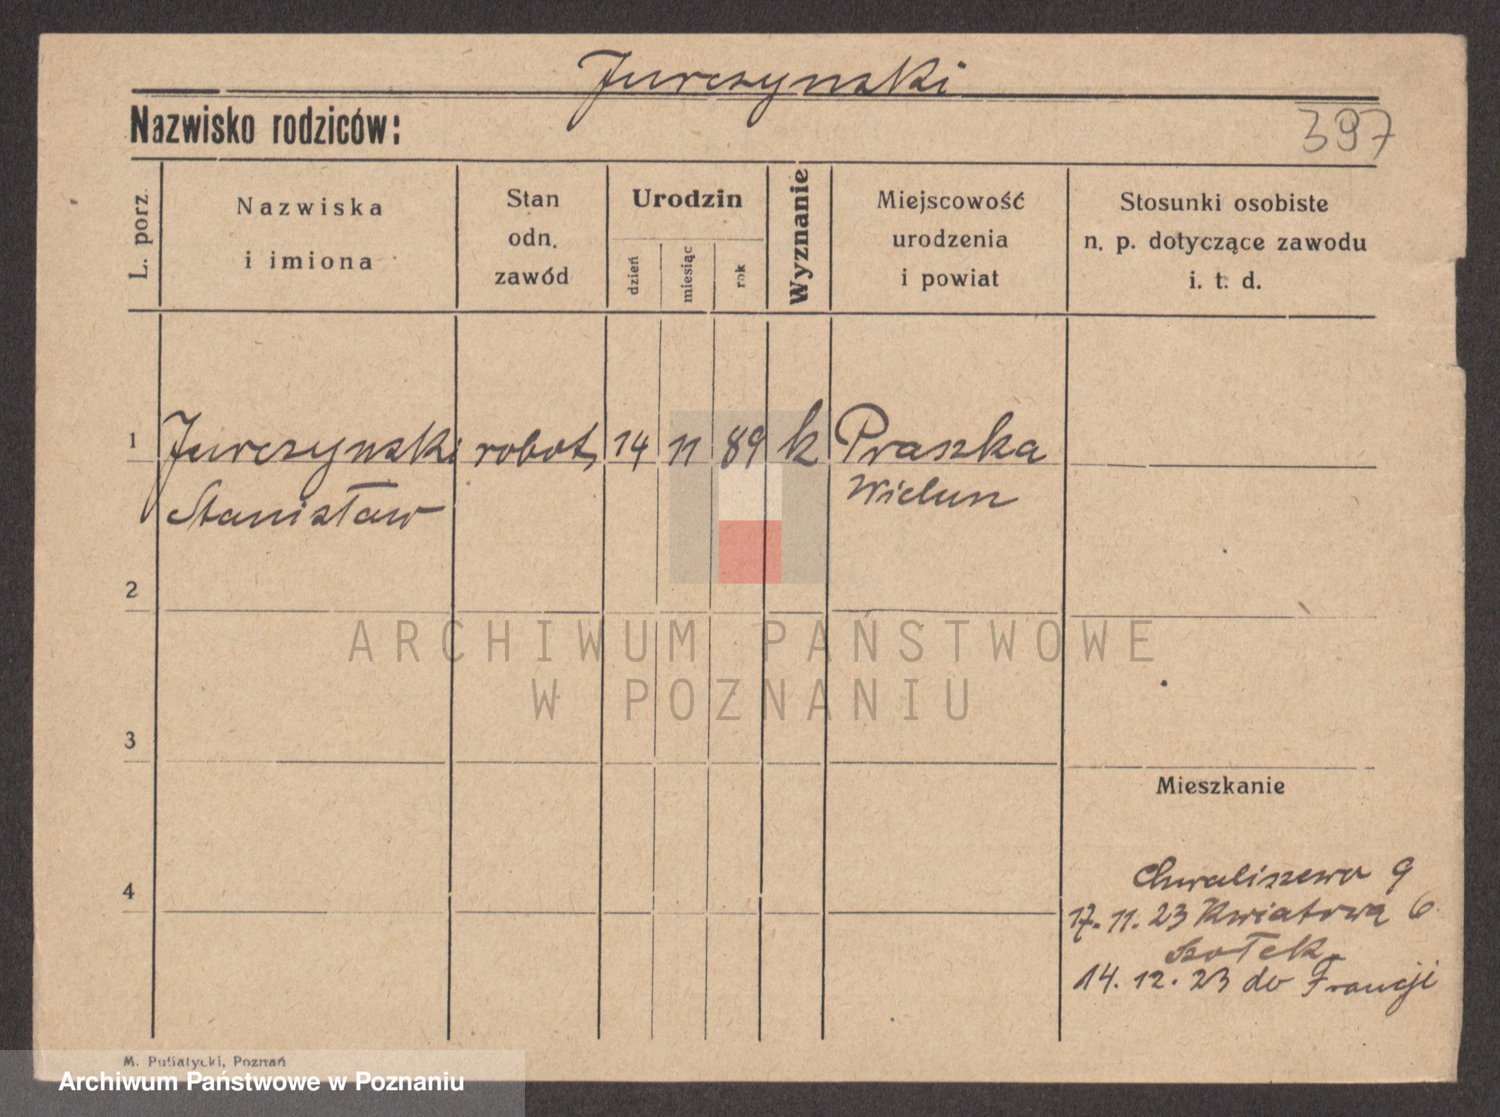 Jurczynski
Nazwisko rodziców:
397
L. porz.
Nazwiska
i imiona
Stan
odn.
zawód
Urodzin
dzień
miesiąc
rok
Wyznanie
Miejscowość
urodzenia
i powiat
Stosunki osobiste
n. p. dotyczące zawodu
i. t. d.
1 Jurczynski robot, 14 11 89 k Praszka
Stanisław Wielun
2
3
4
Mieszkanie
Chwaliszewo 9
17. 11. 23 Kwiatową 6
14. 12. 23 do Francji
M. Putiatycki, Poznań
ARCHIWUM PAŃSTWOWE
W POZNANIU
Archiwum Państwowe w Poznaniu